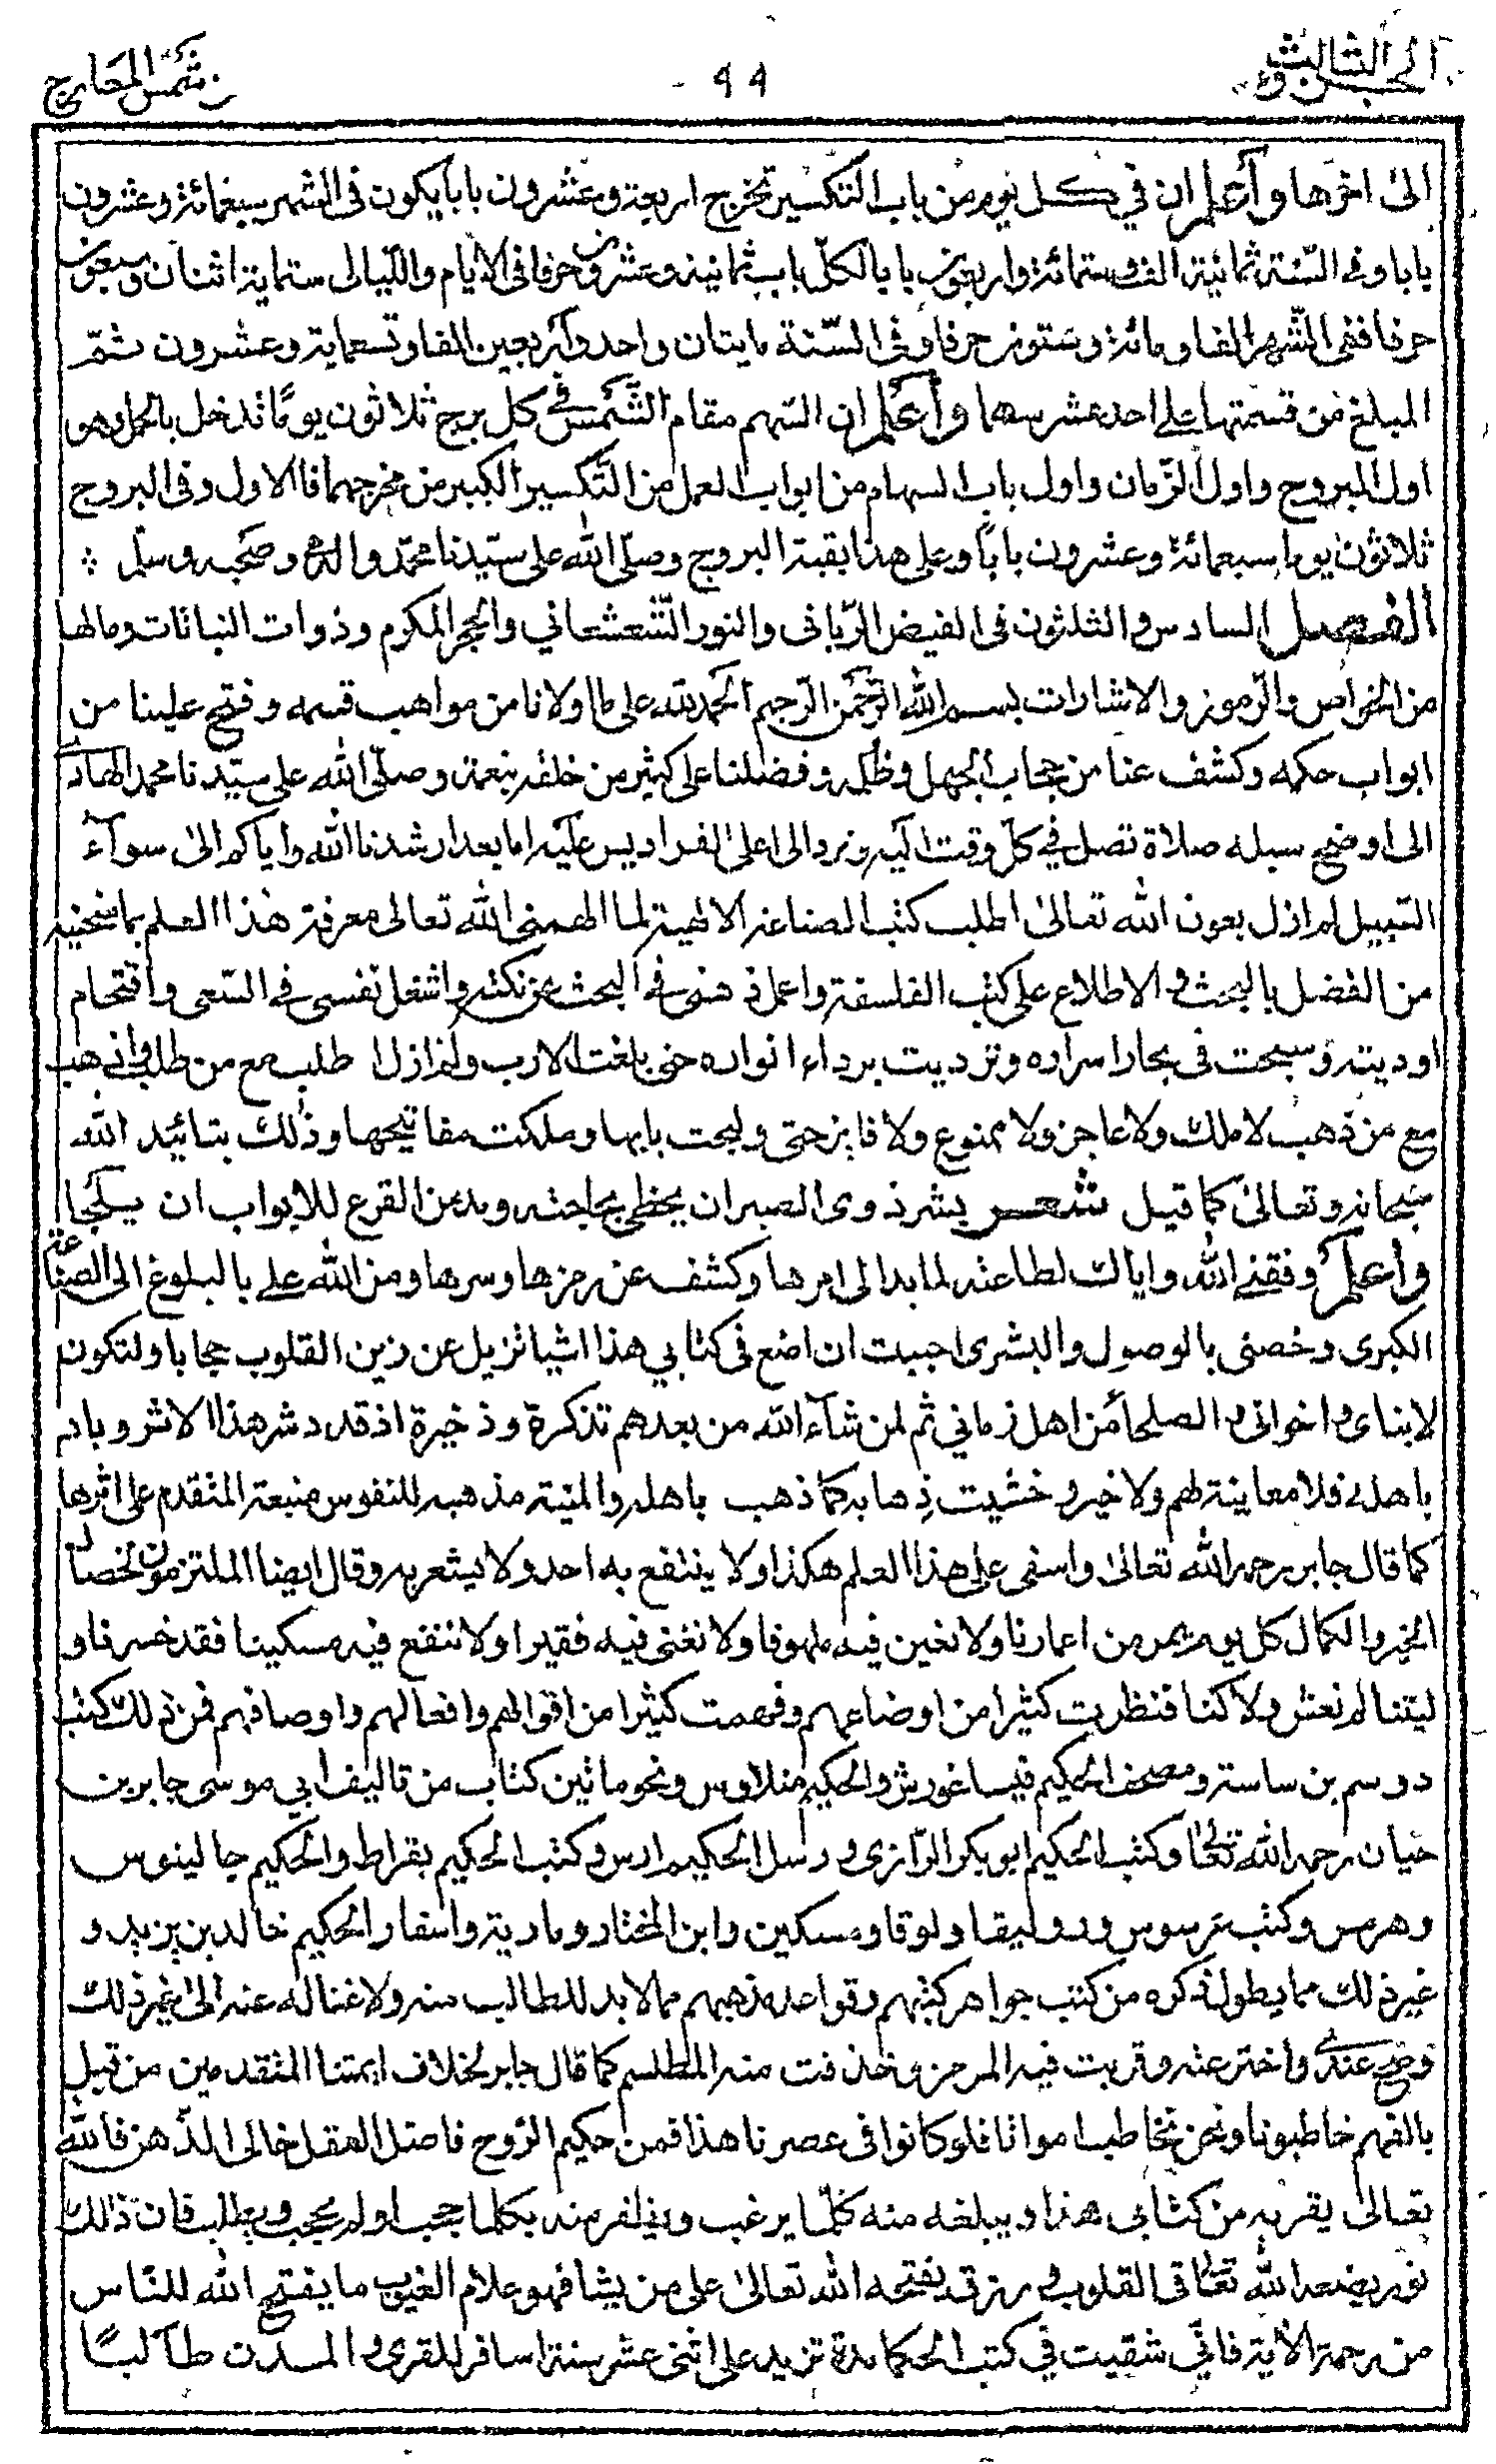 الجزء الثالث
٩٩
من شمس المعارف
الى اخرها وأعلم ان في كل يوم من باب التكسير تخرج اربعة وعشرون بابا يكون فى الشهر سبعمائة وعشرون
بابا وفى السّنة ثمانية الف وستمائة واربعون بابا لكلّ باب ثمانية وعشرون حرفا فى الايام والليالى ستماية اثنان وسبعون
حرفا ففى الشّهر الفا ومائة وستون حرفا وفى السّنة مايتان واحد وأربعين الفا وتسعماية وعشرون ثمّ
المبلغ فمن قسمتها على احد عشر سهما وأعلم ان السّهم مقام الشّمس فى كل برج ثلاثون يومًا تدخل بالحمل وهو
اول البروج واول الزّمان واول باب السهام من ابواب العمل من التّكسير الكبير من مخرجهما فالاول وفى البروج
ثلاثون يوما سبعمائة وعشرون بابًا وعلى هذا بقية البروج وصلّى الله على سيّدنا محمّد واله وصحبه وسلم
الفصل السادس والثلثون فى الفيض الرّبانى والنور الشّعشعاني والحجر المكرم وذوات النباتات ومالها
من الخواص والرموز والاشارات بسم الله الرّحمٰن الرّحيم الحمد لله على ما اولانا من مواهب قسمه وفتح علينا من
ابواب حكمه وكشف عنا من حجاب الجهل وظلمه وفضلنا على كثير من خلقه بنعمة وصلّى الله على سيّدنا محمد الهادى
الى اوضح سبله صلاة تصل في كلّ وقت اليه وترد الى اعلى الفراديس عليه اما بعد ارشدنا الله واياكم الى سوآء
السّبيل لم ازل بعون الله تعالىٰ اطلب كتب الصناعة الالهية لما الهمنى الله تعالى معرفة هذا العلم بما منحنيه
من الفضل بالبحث و الاطلاع على كتب الفلسفة واعمل ذهنى فى البحث عن نكته واشغل نفسى فى السّعى واقتحام
اوديته وسبحت فى بحار اسراره وترديت برداء انواره حتى بلغت الارب ولم ازل اطلب مع من طلب واذهب
مع من ذهب لا ملك ولا عاجز ولا ممنوع ولا فايز حتى ولجت بابها وملكت مفاتيحها وذلك بتائيد الله
سبحانه وتعالىٰ كما قيل شعر بشر ذوى الصبر ان يحظى بحاجته ومدمن القرع للابواب ان يلجا
وأعلم وفقنى الله واياك لطاعته لما بدا لى امرها وكشف عن رمزها وسرها ومن الله على بالبلوغ الى الصناعة
الكبرى وخصنى بالوصول والبشرى احببت ان اضع فى كتابي هذا اشيا تزيل عن زين القلوب حجابا ولتكون
لابناى و اخوانى و الصلحا من اهل زماني ثم لمن شآء الله من بعدهم تذكرة وذخيرة اذ قد دثر هذا الاثر وباد
باهله فلا معاينة لهم ولا خير و خشيت ذهابه كما ذهب باهله والمنية مذهبه للنفوس متبعة المتقدم على اثرها
كما قال جابر رحمه الله تعالىٰ واسفى على هذا العلم هكذا ولا ينتفع به احد ولا يشعر به وقال ايضا الملتزمون لخصال
الخير والكمال كل يوم يمر من اعمارنا ولا نغين فيه ملهوفا ولا نغنى فيه فقيرا ولا ننفع فيه مسكينا فقد خسرنا و
ليتنا لم نعش ولا كنا فنظرت كثيرا من اوضاعهم وفهمت كثيرا من اقوالهم وافعالهم واوصافهم فمن ذلك كتب
دوسم بن ساسترو مصحف الحكيم فيساغورش والحكيم منلاوس ونحو ماتين كتاب من تاليف ابي موسى جابر بن
حيان رحمه الله تعالىٰ وكتب الحكيم ابو بكر الرّازى و رسل الحكيم ارس وكتب الحكيم بقراط والحكيم جالينوس
وهرمس وكتب ترسوس ودوليقا ولوقا ومسكين وابن المختار ومارية واسفار الحكيم خالد بن يزيد و
غير ذلك مما يطول ذكره من كتب جواهر كتبهم وقواعد مذهبهم مما لا بد للطالب منه ولا غنا له عنه الى غير ذلك
وصح عندى واختر عته وقربت فيه المرمز وحذفت منه المطلسم كما قال جابر لخلاف ايمتنا المتقدمين من قبل
بالفهم خاطبونا ونحن نخاطب امواتا فلو كانوا فى عصرنا هذا فمن حكيم الرّوح فاصل العقل خالى الذّهن فالله
تعالىٰ يقربه من كتابى هذا ويبلغه منه كلّما يرغب ويظفر منه بكلما احب اولم يحجب ويطلب فان ذلك
نور يضعه الله تعالىٰ فى القلوب و رزق يفتحه الله تعالىٰ على من يشا فهو علام الغيوب ما يفتح الله للنّاس
من رحمة الاٰية فانّي شقيت في كتب الحكما مدة تزيد على اثنى عشر سنة اسافر للقرى و المدن طالبًا